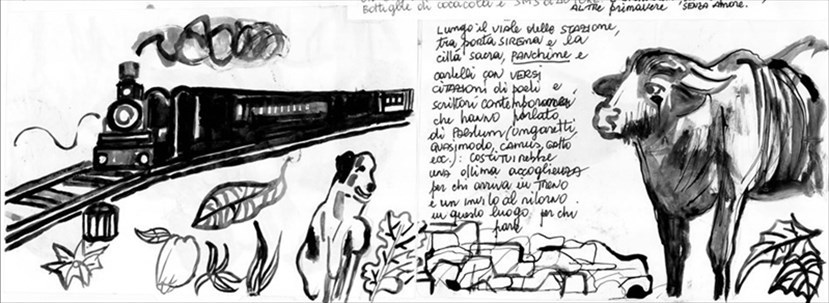 Bottiglie di cocacola e SMS
ALTRE primavere SENZA AMORE.
Lungo il viale della STAZIONE,
tra porta SIRENA e la
città sacra, PANCHINE e
cartelli con VERSI
CITAZIONI di poeti e
scrittori contemporanei
che hanno parlato
di Paestum (Ungaretti,
Quasimodo, Camus, Gatto
ecc.): costituirebbe
una ottima accoglienza
per chi arriva in treno
e un invito al ritorno
in questo luogo, per chi
parte